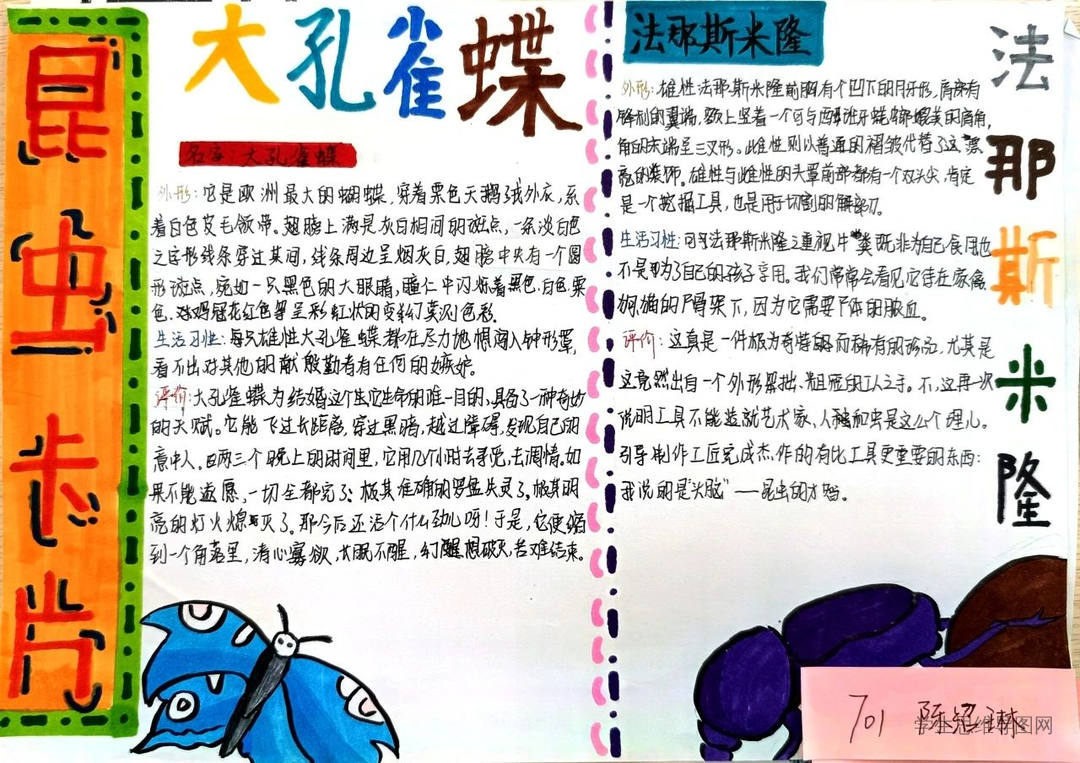 昆虫卡片
大孔雀蝶
名字:大孔雀蝶
外形:它是欧洲最大的蝴蝶,穿着栗色天鹅绒外衣,系
着白色皮毛领带。翅膀上满是灰白相间的斑点,一条淡白色
之字形线条穿过其间,线条周边呈烟灰白,翅膀中央有一个圆
形斑点,宛如一只黑色的大眼睛,瞳仁中闪烁着黑色、白色、栗
色、鸡冠花红色等呈彩虹状的变幻莫测色彩。
生活习性:每只雄性大孔雀蝶都在尽力地想闯入钟形罩,
看不出对其他的献殷勤者有任何的嫉妒。
评价:大孔雀蝶为结婚这个生它生命的唯一目的,具备了一种奇妙
的天赋。它能飞过长距离,穿过黑暗,越过障碍,发现自己的
意中人。两三个晚上的时间里,它用几个小时去寻觅,去调情。如
果不能遂愿,一切全都完了:极其准确的罗盘失灵了,极其明
亮的灯火熄灭了。那今后还活个什么劲儿呀!于是,它便缩
到一个角落里,清心寡欲,长眠不醒,幻想破灭,苦难结束。
法那斯米隆
法那斯米隆
外形:雄性法那斯米隆前胸有个凹下的月牙形,肩部有
锋利的翼端,额上竖着一个可与西班牙蜣螂媲美的角,
角的末端呈三叉形。雌性则以普通的褶皱代替了这漂
亮的装饰。雄性与雌性的头罩前部都有一个双头尖,肯定
是一个挖掘工具,也是用于切割的解剖刀。
生活习性:法那斯米隆之重视牛粪既非为自己食用也
不是为了自己的孩子享用。我们常常会看见它待在家禽、
狗、猫的尸骨架下,因为它需要尸体的脓血。
评价:这真是一件极为奇特的而稀有的珍品,尤其是
这竟然出自一个外形笨拙、粗硕的工人之手。不,这再一次
说明工具不能造就艺术家,人和虫是这么个理儿。
引导制作工匠完成杰作的有比工具更重要的东西:
我说的是“头脑”——昆虫的才智。
701 陈
学生思维导图网